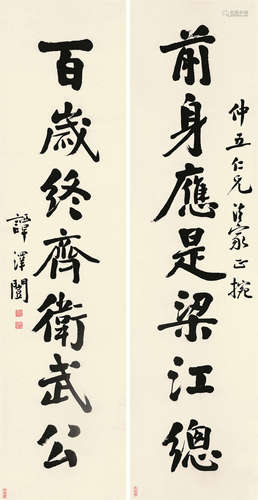 仲五仁兄法家正挽
前身應是梁江總
百歲終齊衛武公
譚澤闓